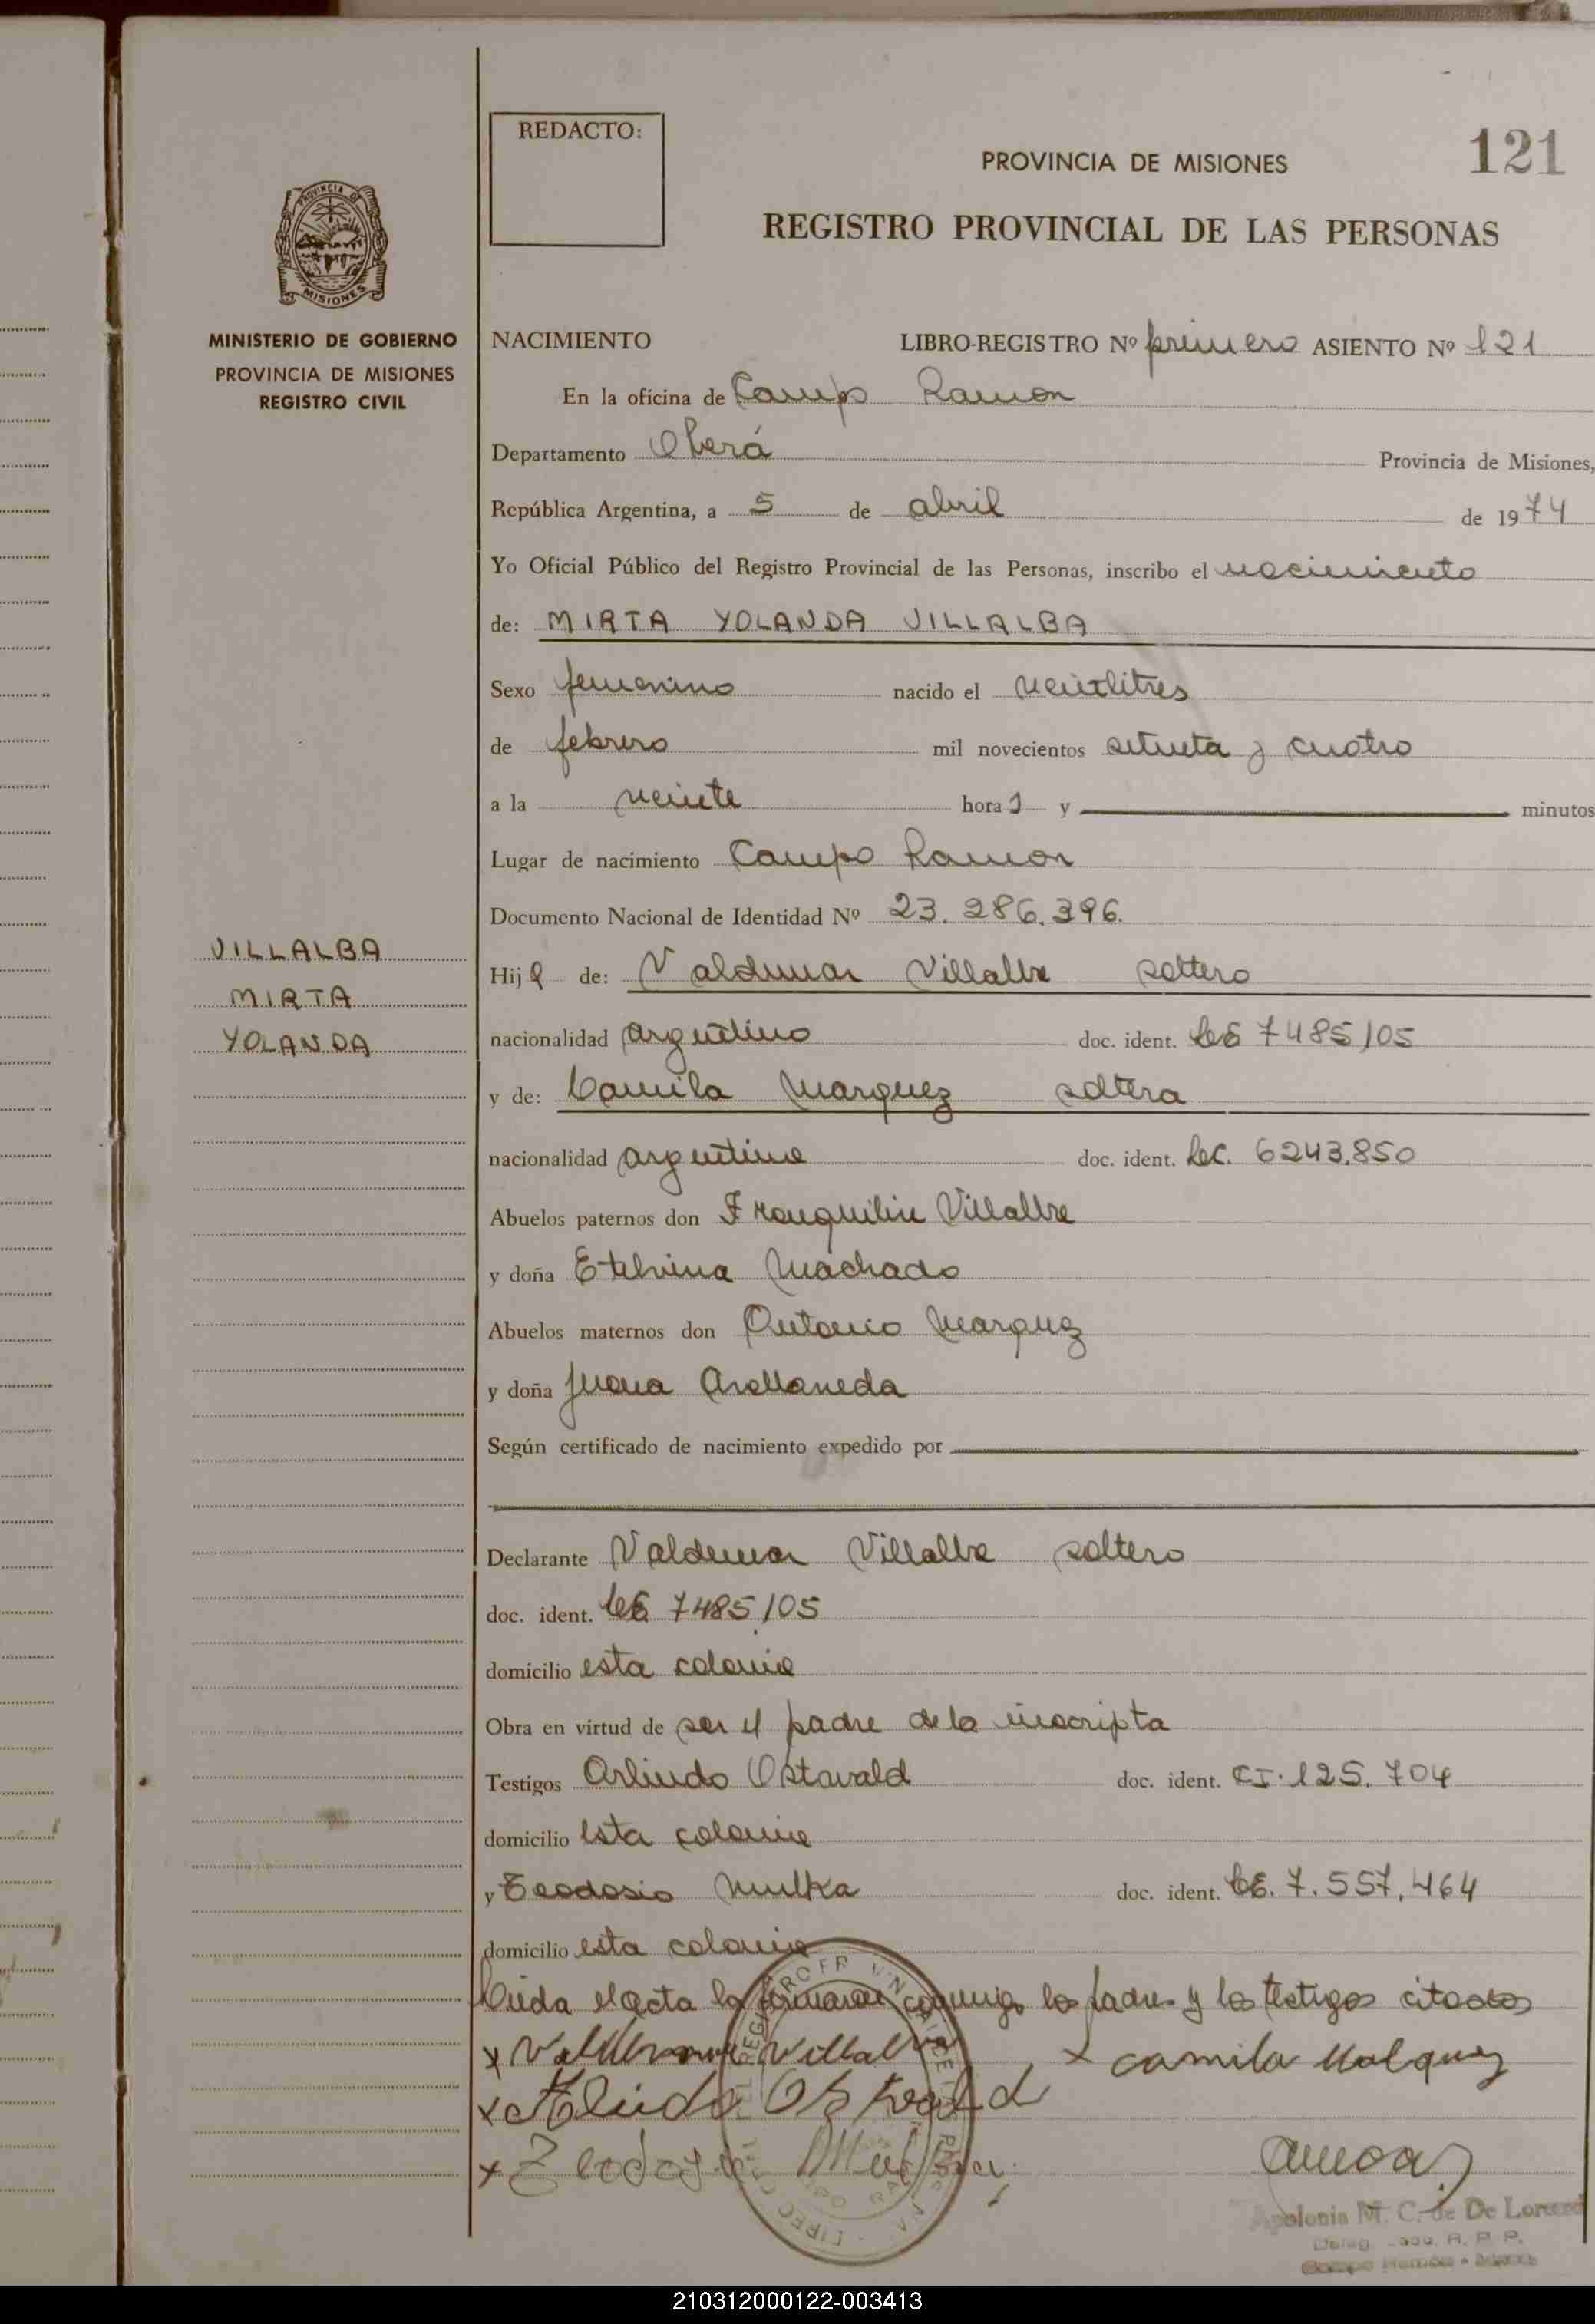 REDACTO:
121
PROVINCIA DE MISIONES
REGISTRO PROVINCIAL DE LAS PERSONAS
PROVINCIA DE
MISIONES
MINISTERIO DE GOBIERNO
PROVINCIA DE MISIONES
REGISTRO CIVIL
NACIMIENTO LIBRO-REGISTRO Nº primero ASIENTO Nº 121
En la oficina de Campo Ramon
Departamento Oberá Provincia de Misiones,
República Argentina, a 5 de abril de 1974
Yo Oficial Público del Registro Provincial de las Personas, inscribo el nacimiento
de: MIRTA YOLANDA VILLALBA
Sexo femenino nacido el veintitres
de febrero mil novecientos setenta y cuatro
a la veinte hora s y minutos
Lugar de nacimiento Campo Ramon
Documento Nacional de Identidad Nº 23.286.396.
VILLALBA
MIRTA
YOLANDA
Hija de: Valdemar Villalba soltero
nacionalidad argentino doc. ident. LE 7485105
y de: Camila Marquez soltera
nacionalidad argentina doc. ident. LC. 6243.850
Abuelos paternos don Franquilin Villalba
y doña Etelvina Machado
Abuelos maternos don Antonio Marquez
y doña Juana Avellaneda
Según certificado de nacimiento expedido por
Declarante Valdemar Villalba soltero
doc. ident. LE 7485105
domicilio esta colonia
Obra en virtud de ser el padre de la inscripta
Testigos Arlindo Ostwald doc. ident. CI. 125.704
domicilio esta colonia
y Teodosio Mulka doc. ident. LE. 7.557.464
domicilio esta colonia
Leida el acta la firman conmigo los padres y los testigos citados
x Valdemar Villalba x Camila Malquez
x Alindo Ostwald
x Mulka
Apolonia M. C. de De Lorenzi
R. P. P.
210312000122-003413